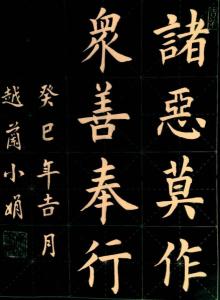 諸惡莫作
衆善奉行
癸巳年吉月
越蘭小娟